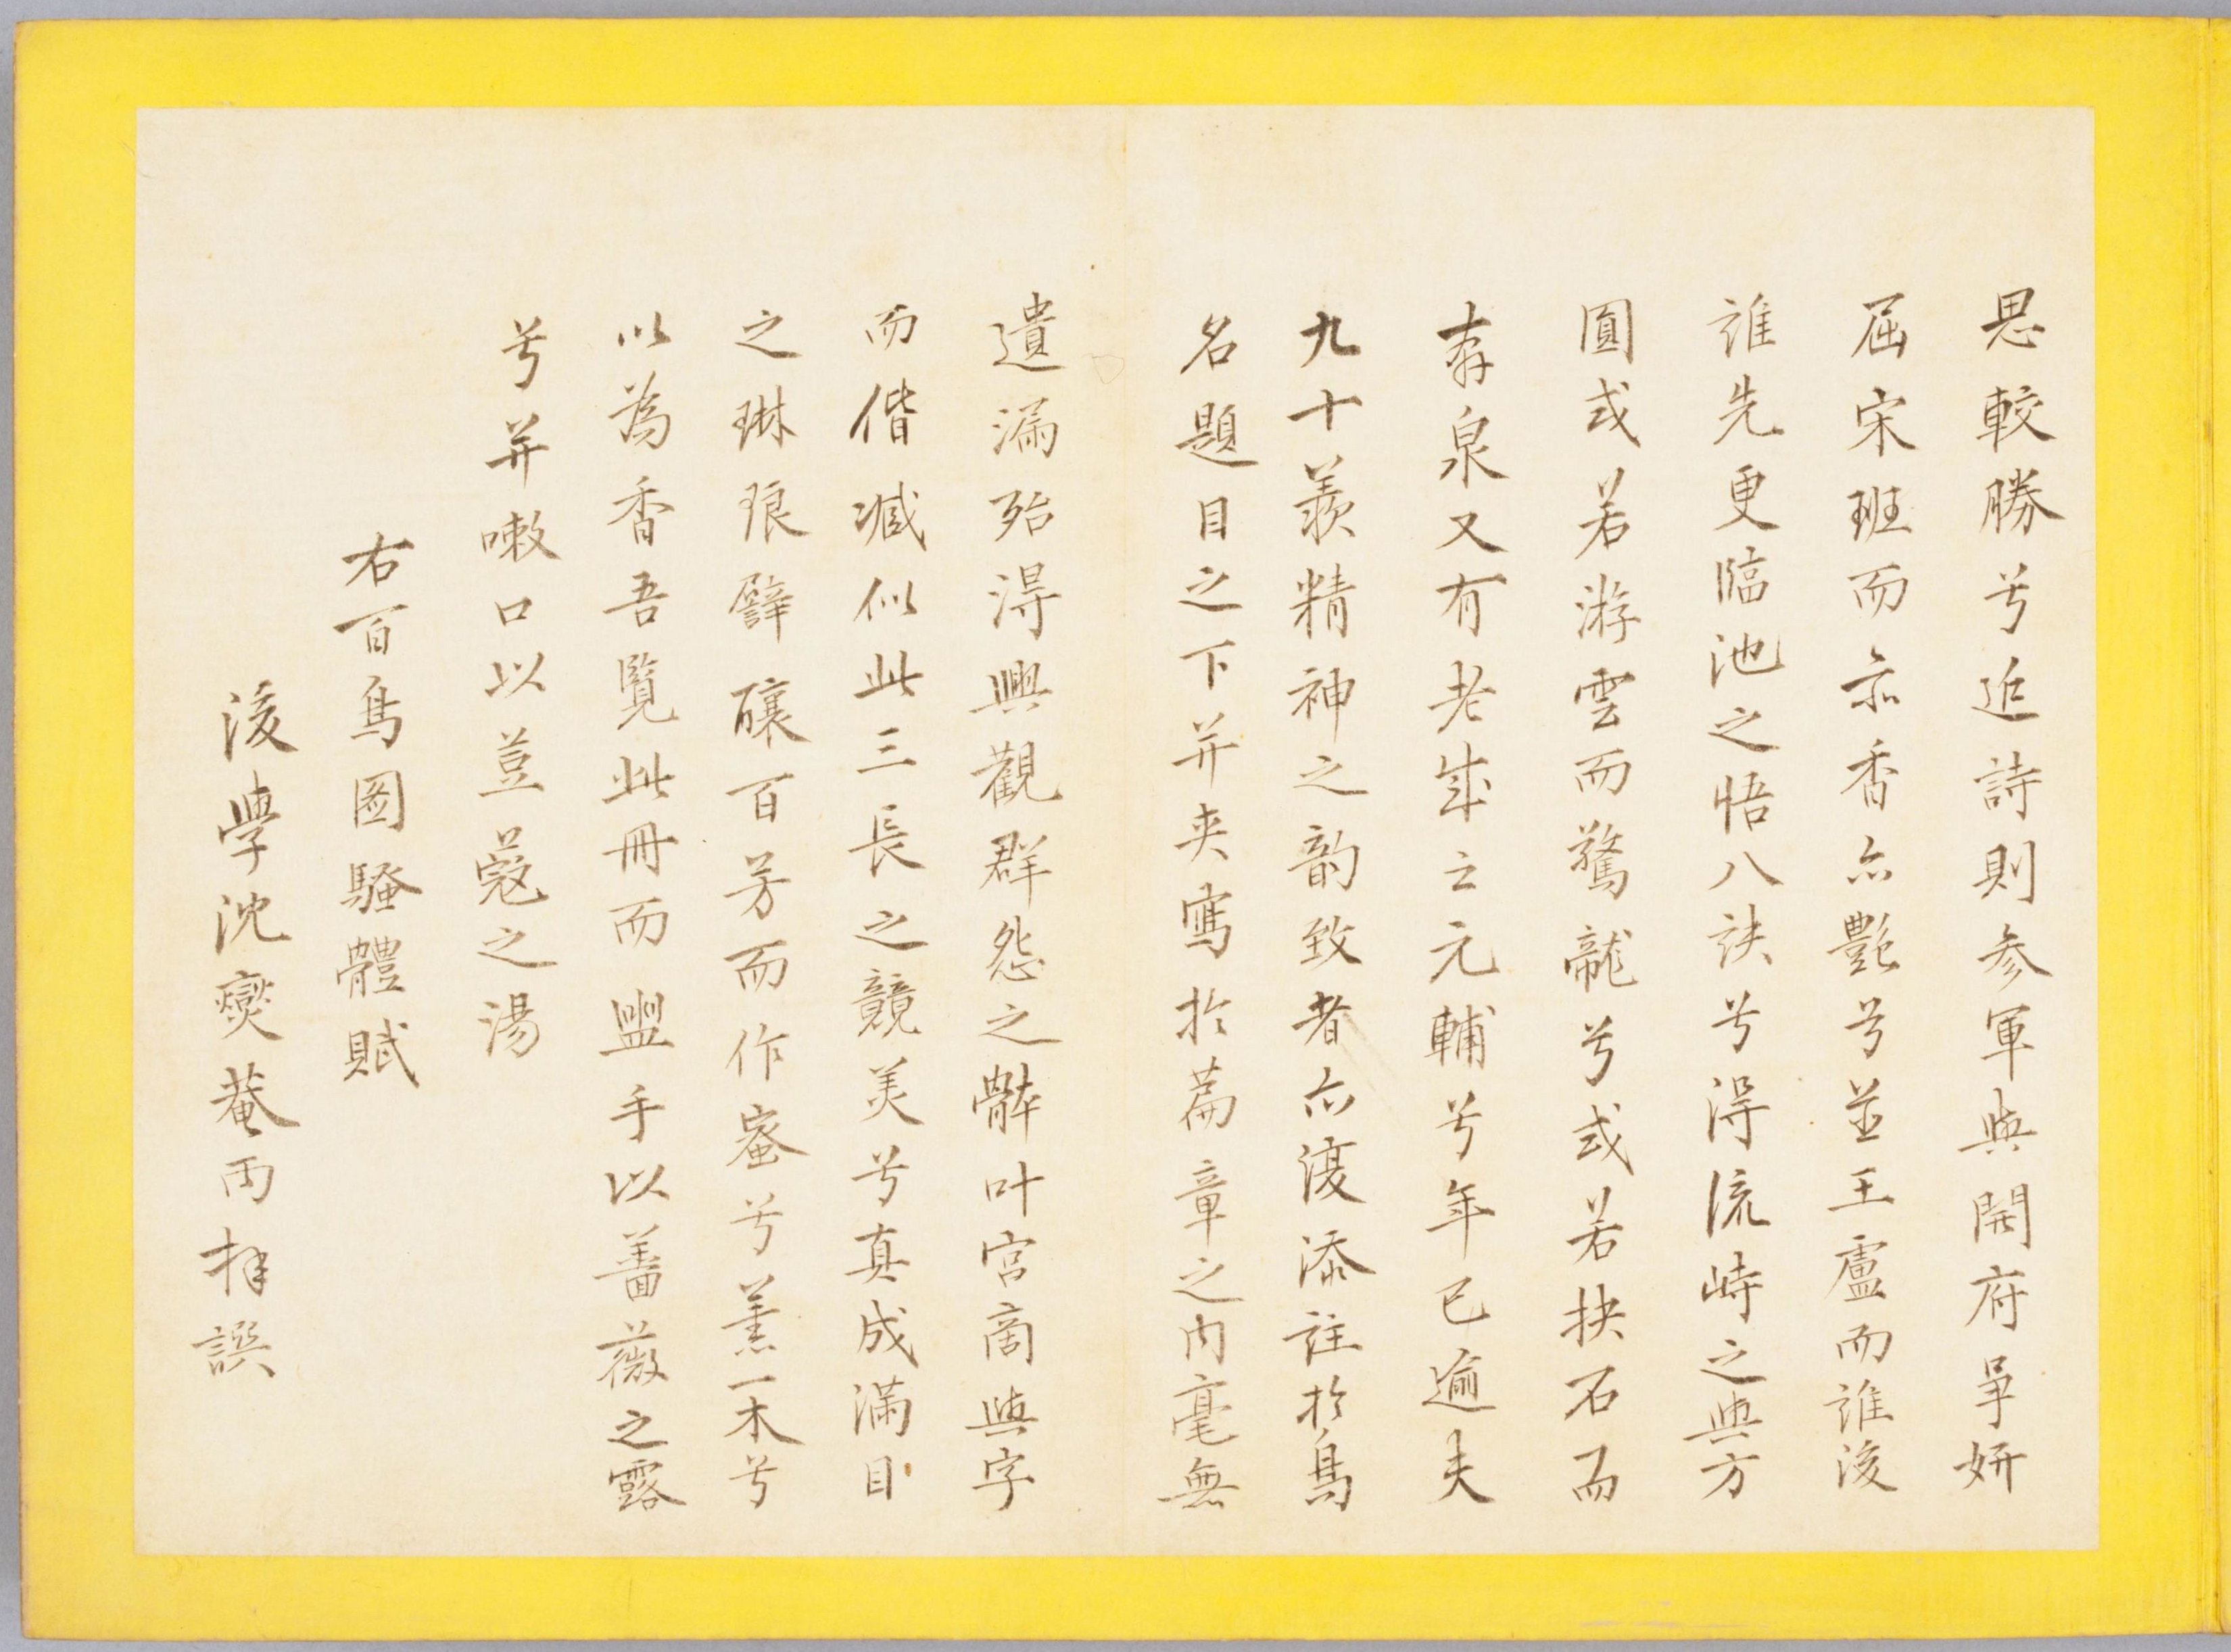 思較勝兮近詩則参軍與開府爭妍
屈宋班而亦香亦艷兮並王盧而誰後
誰先更臨池之悟八訣兮得流峙之與方
圓或若游雲而驚龍兮或若抉石而
奔泉又有老成之元輔兮年已逾夫
九十羨精神之韵致者亦復添註於鳥
名題目之下并夾寫於篇章之内毫無
遺漏殆得興觀群怨之辭叶宮商與字
而偕臧似此三長之競美兮真成滿目
之琳琅譬釀百芳而作蜜兮薰一木兮
以為香吾覧此冊而盥手以薔薇之露
兮并嗽口以荳蔻之湯
右百鳥图騷體賦
後學沈爕菴丙拜譔